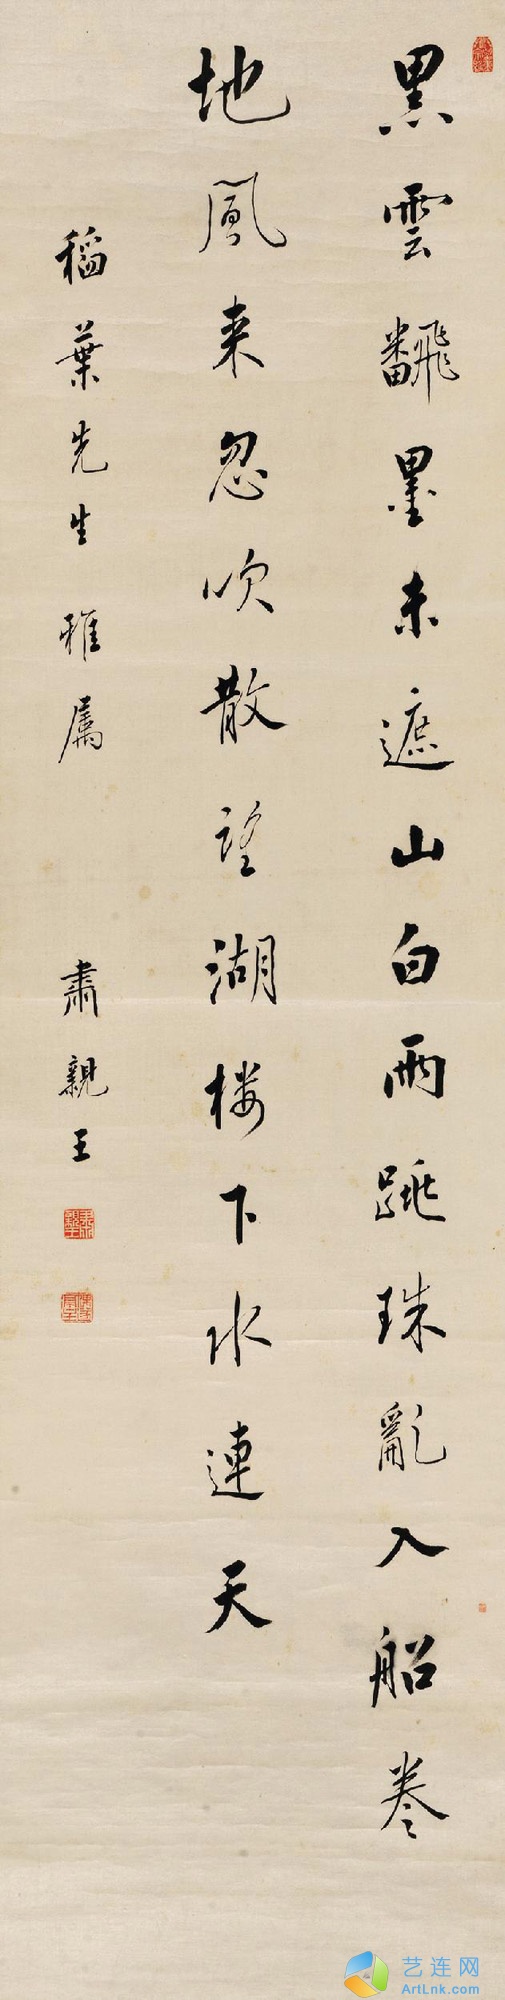 黑雲飜墨未遮山白雨跳珠亂入船卷
地風来忽吹散望湖楼下水連天
稲葉先生雅属
肃親王
艺连网
ArtLnk.com